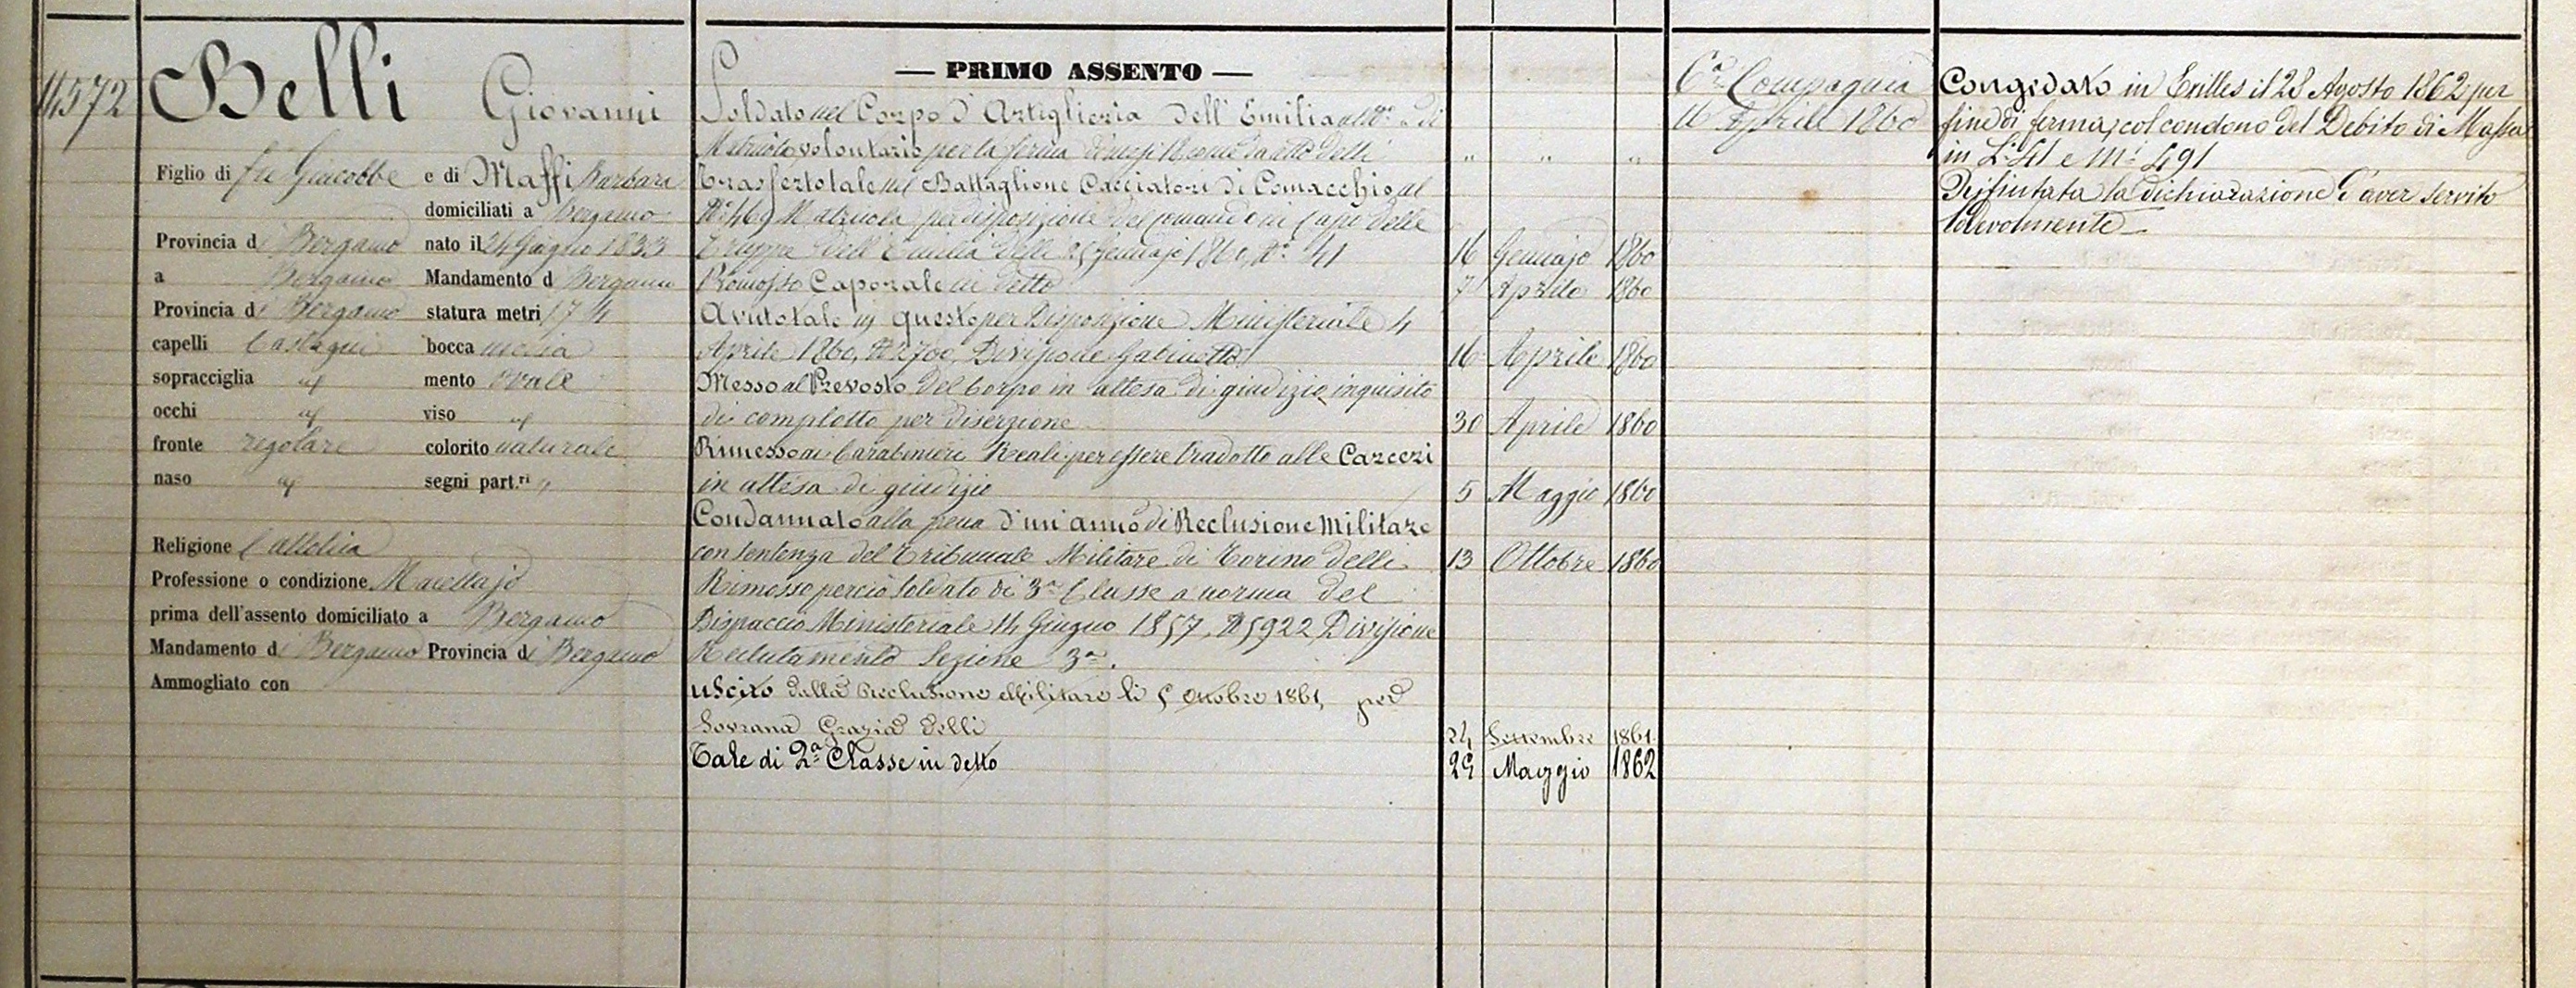 14572
Belli Giovanni
Figlio di fu Giacobbe e di Maffi Barbara
domiciliati a Bergamo
Provincia di Bergamo nato il 24 Giugno 1833
a Bergamo Mandamento di Bergamo
Provincia di Bergamo statura metri 1 74
capelli Castagni bocca media
sopracciglia id mento ovale
occhi id viso id
fronte regolare colorito naturale
naso id segni part.ri "
Religione Cattolica
Professione o condizione Macellajo
prima dell'assento domiciliato a Bergamo
Mandamento di Bergamo Provincia di Bergamo
Ammogliato con
— PRIMO ASSENTO —
Soldato nel Corpo d'Artiglieria dell'Emilia al N.° " di
Matricola volontario per la ferma di mesi 18 come da atto delli " " "
Trasferto tale nel Battaglione Cacciatori di Comacchio al
N.° 469 Matricola per disposizione del Comando in Capo delle
Truppe dell'Emilia delli 25 Gennajo 1860, N.° 41 16 Gennajo 1860
Promosso Caporale in detto 7 Aprile 1860
Avuto tale in questo per Disposizione Ministeriale 4
Aprile 1860, N.° 2700, Divisione Gabinetto 16 Aprile 1860
Messo al Prevosto del Corpo in attesa di giudizio, inquisito
di complotto per diserzione 30 Aprile 1860
Rimesso ai Carabinieri Reali per essere tradotto alle Carceri
in attesa di giudizio 5 Maggio 1860
Condannato alla pena d'un'anno di Reclusione Militare
con sentenza del Tribunale Militare di Torino delli 13 Ottobre 1860
Rimosso perciò soldato di 3.a Classe a norma del
Dispaccio Ministeriale 14 Giugno 1857, N 5922 Divisione
Reclutamento Sezione 3.a.
uscito dalla Reclusione Militare li 5 Ottobre 1861, per
Sovrana Grazia delli 24 Settembre 1861
Tale di 2.a Classe in detto 29 Maggio 1862
6.a Compagnia
16 Aprile 1860
Congedato in Exilles il 28 Agosto 1862 per
fine di ferma, col condono del Debito di Massa
in L. 41 e M.i 491
Rifiutata la dichiarazione d'aver servito
lodevolmente